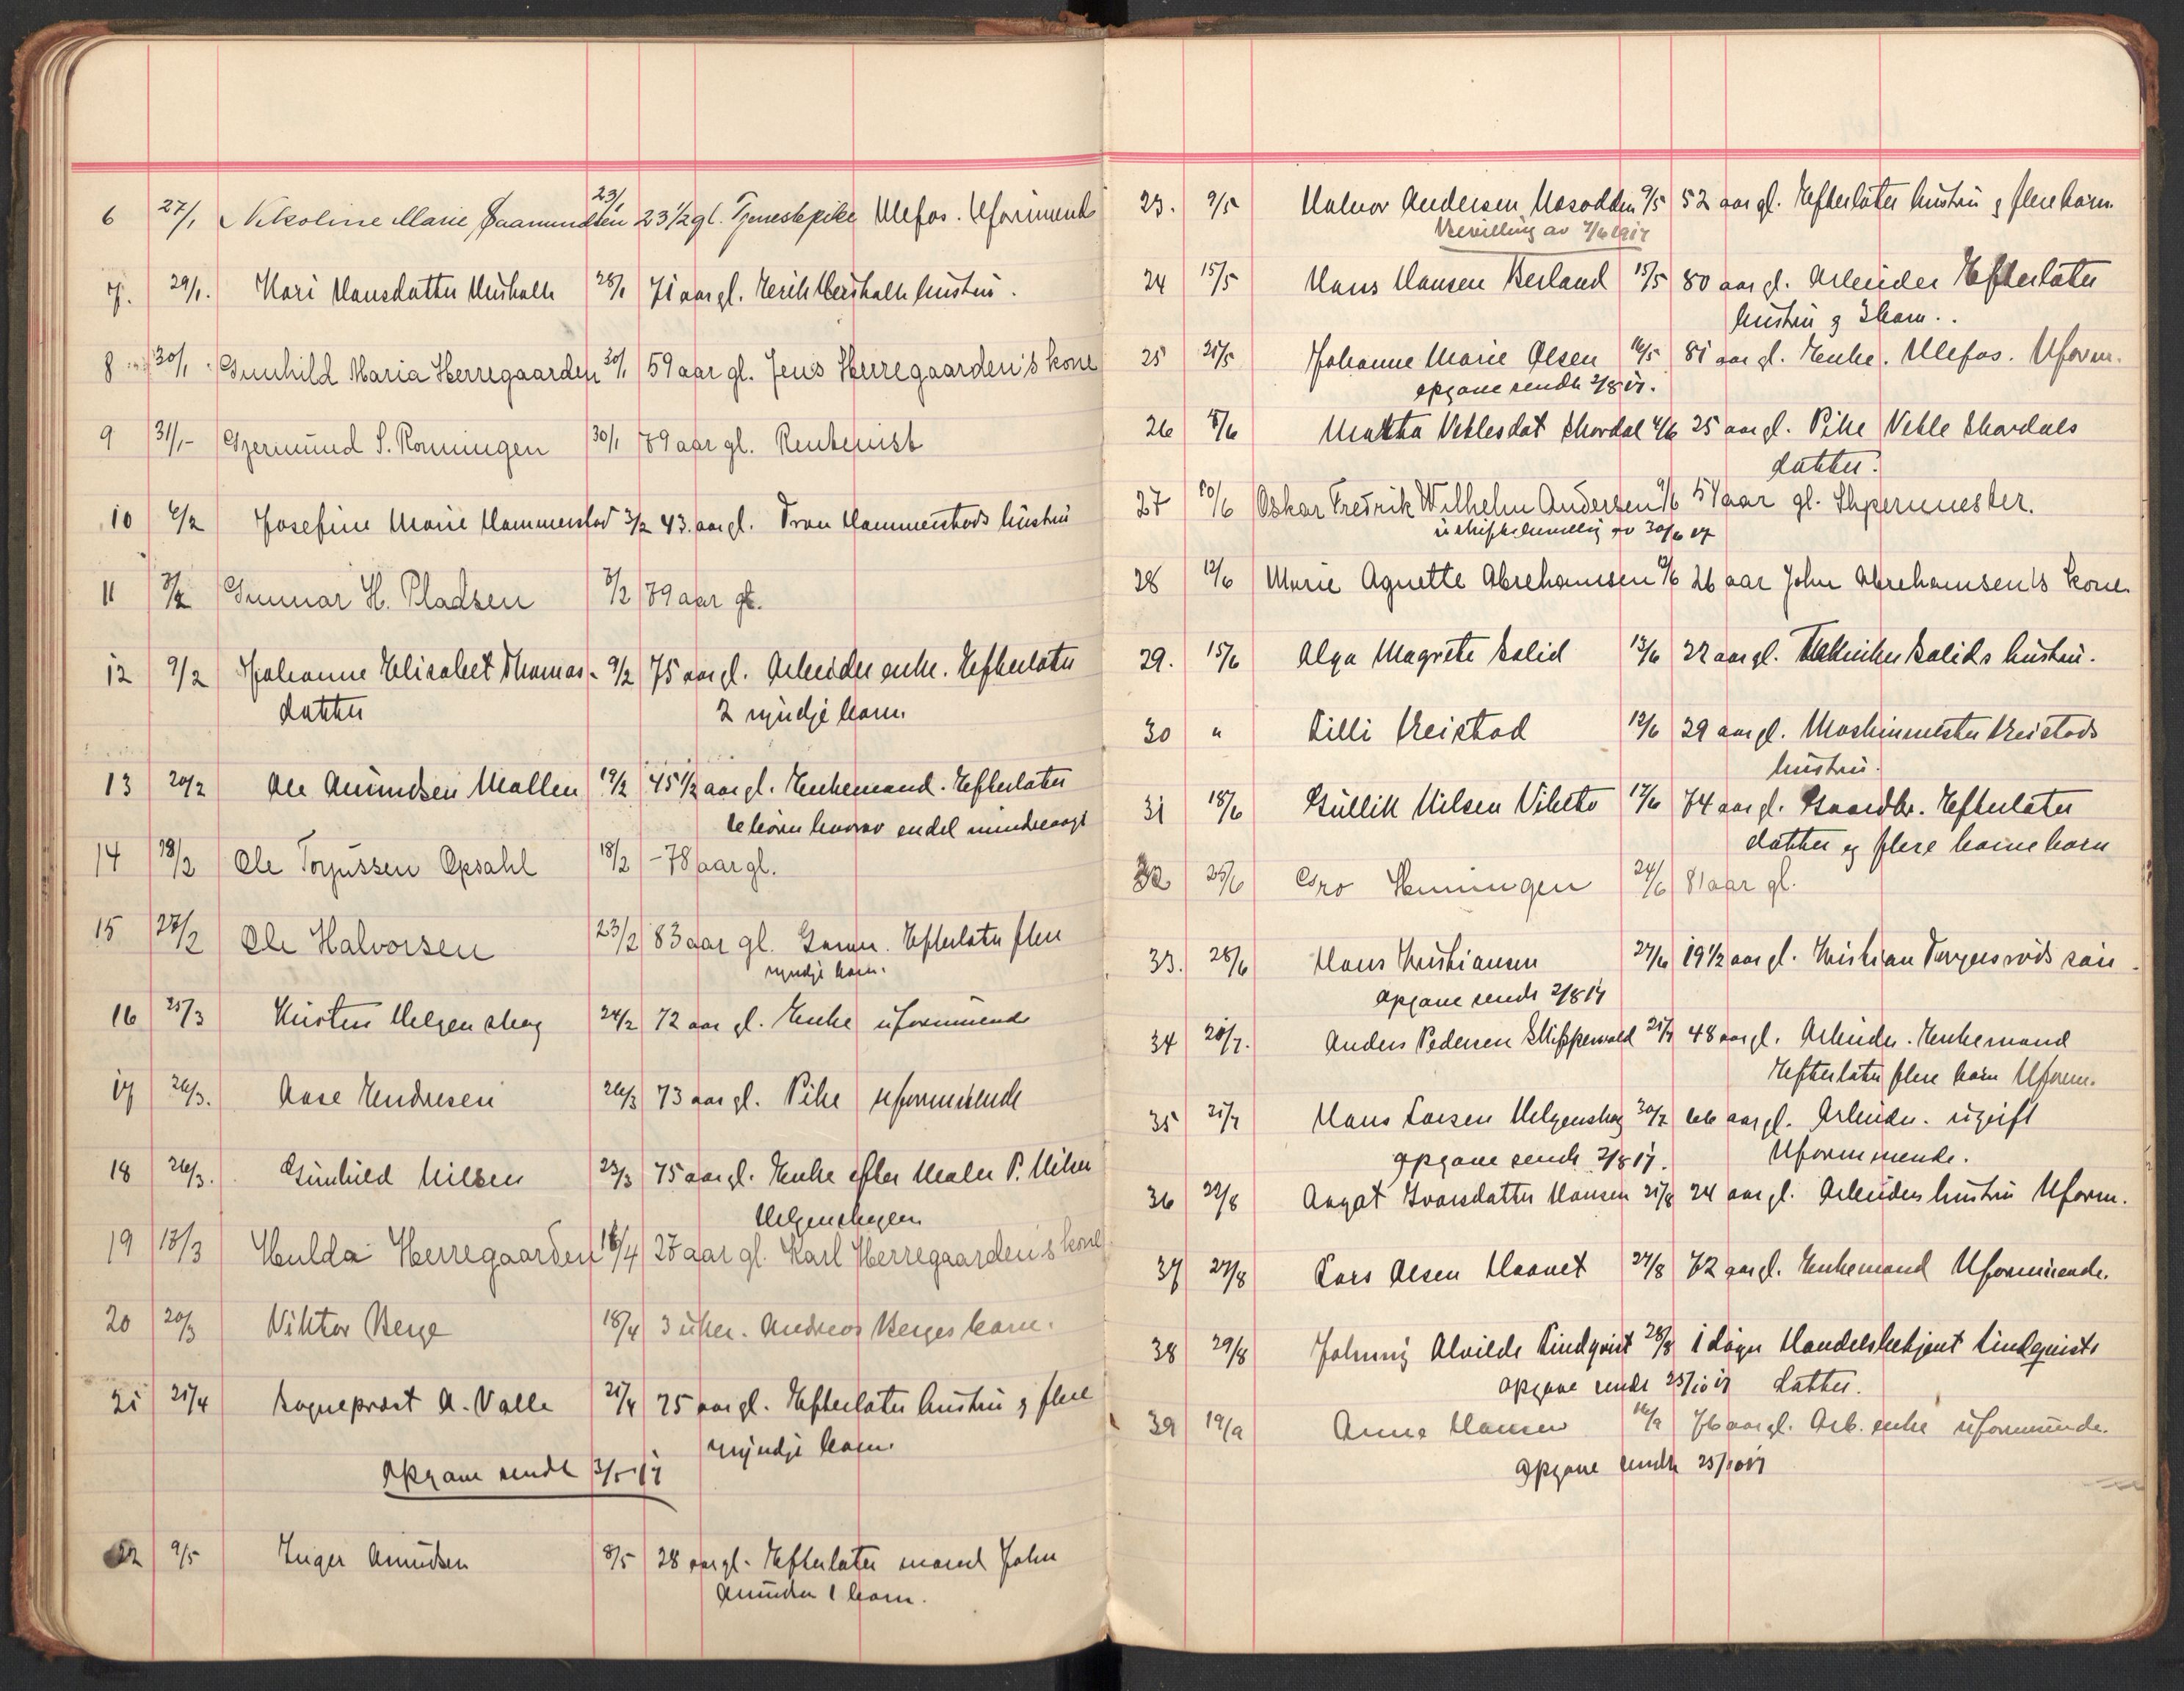 6 27/1 Nikoline Marie Saamundsen 23/1 23 1/2 gl. Tjenestepike Ulefos. Uformuende
7. 29/1. Kari Hansdatter 28/1 71 aar gl. hustru.
8 30/1 Gunhild Maria Herregaarden 30/1 59 aar gl. Jens Herregaarden's kone
9 31/1- Gjermund S. Ronningen 30/1 79 aar gl. Rentenist
10 6/2 Josefine Marie Hammerstad 3/2 43. aar gl. Hammerstads hustru
11 Gunnar H. Pladsen 79 aar gl.
12 9/2 Johanne Elisabet Thomas- 9/2 75 aar gl. Arbeider enke. Efterlater
datter 2 myndje barn.
13 20/2 Ole Amundsen Mollen 19/2 45 1/2 aar gl. Enkemand. Efterlater
barn hvorav endel mindreaarge
14 18/2 Ole Torjussen Opsahl 18/2 - 78 aar gl.
15 Ole Halvorsen 23/2 83 aar gl. Efterlater flere
myndje barn.
16 25/3 Kirsten Helgenshog 24/2 72 aar gl. Enke uformuende
17 26/3. Aase Endresen 26/3 73 aar gl. Pike uformuende
18 26/3. Gunhild Nilsen 23/3 75 aar gl. Enke efter Maler P. Nilsen
Helgenshogen
19 18/3 Hulda Herregaarden 16/4 27 aar gl. Karl Herregaarden's kone
20 20/3 Viktor Berge 18/4 3 uker. Andreas Berges barn.
21 21/4 Sogneprost A. Valle 21/4 75 aar gl. Efterlater hustru og flere
myndje barn.
Opgave sendt 3/5 17
22 9/5 Inger Amundsen 8/5 28 aar gl. Efterlater mand John
Amundsen 1 barn.
23. 9/5 Halvor Andersen 9/5 52 aar gl. Efterlater hustru og flere barn.
Bevilling av 7/6 1917
24 15/5 Hans Hansen Berland 15/5 80 aar gl. Arbeider Efterlater
hustru og 3 barn..
25 21/5 Johanne Marie Olsen 16/5 81 aar gl. Enke. Ulefos. Uform.
opgave sendt 2/8 17.
26 Vetlesdat Skordal 4/6 25 aar gl. Pike Vetle Skordals
datter.
27 10/6 Oskar Fredrik Wilhelm Andersen 9/6 51 aar gl. Støpermester.
uskiftebevilling av 30/6 17
28 12/6 Marie Agnette Abrehamsen 26 aar John Abrehamsen's kone.
29. 15/6 Olga Magrete Solid 13/6 22 aar gl. Tekniker Solids hustru.
30 " Lilli Kreistad 12/6 29 aar gl. Maskinmester Kreistads
hustru.
31 18/6 Gullik Nilsen Vibeto 17/6 74 aar gl. Gaardbr. Efterlater
datter og flere barnebarn
32 25/6 Gro Henningen 24/6 81 aar gl.
33. 28/6 Hans Kristiansen 27/6 19 1/2 aar gl. Kristian søn.
opgave sendt 2/8 17
34 28/7. Anders Pedersen Skippervold 21/7 48 aar gl. Arbeider. Enkemand
Efterlater flere barn Uform.
35 31/7 Hans Larsen Helgenshog 30/7 66 aar gl. Arbeider. ugift
opgave sendt 2/8 17. Uformuende.
36 22/8 Aagot Ivarsdatter Hansen 21/8 24 aar gl. Arbeiders hustru Uform.
37 27/8 Lars Olsen Haavet 24/8 72 aar gl. Enkemand Uformuende.
38 29/8 Johnny Alvilde Lindqvist 28/8 1 døgn Handelsbetjent Lindqvists
opgave sendt 23/10 17 datter.
39 19/9 Anne Hansen 16/9 76 aar gl. Arb. enke uformuende.
opgave sendt 23/10 17